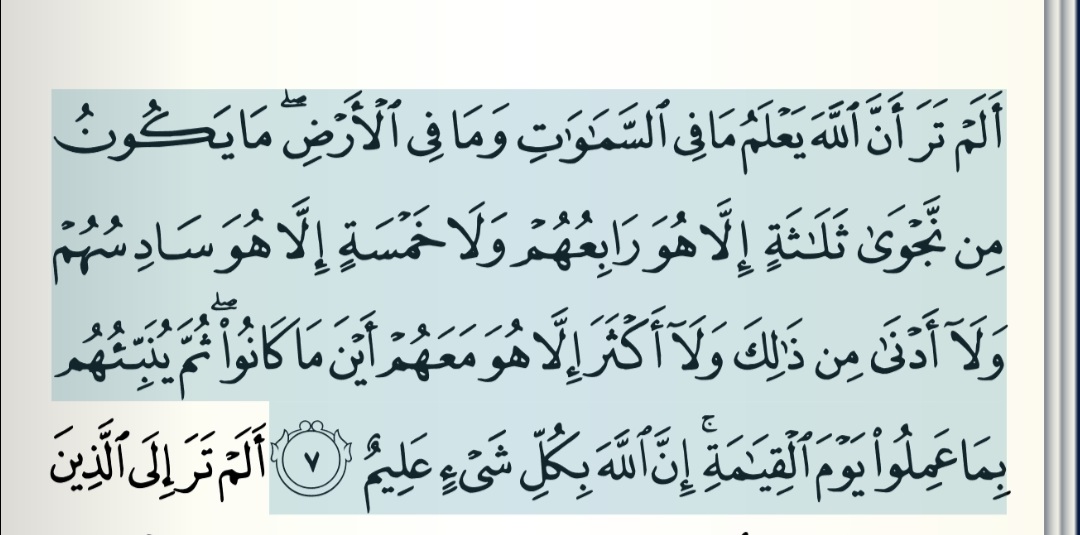 أَلَمْ تَرَ أَنَّ ٱللَّهَ يَعْلَمُ مَا فِى ٱلسَّمَٰوَٰتِ وَمَا فِى ٱلْأَرْضِ ۖ مَا يَكُونُ
مِن نَّجْوَىٰ ثَلَٰثَةٍ إِلَّا هُوَ رَابِعُهُمْ وَلَا خَمْسَةٍ إِلَّا هُوَ سَادِسُهُمْ
وَلَآ أَدْنَىٰ مِن ذَٰلِكَ وَلَآ أَكْثَرَ إِلَّا هُوَ مَعَهُمْ أَيْنَ مَا كَانُوا۟ ۖ ثُمَّ يُنَبِّئُهُم
بِمَا عَمِلُوا۟ يَوْمَ ٱلْقِيَٰمَةِ ۚ إِنَّ ٱللَّهَ بِكُلِّ شَىْءٍ عَلِيمٌ ٧ أَلَمْ تَرَ إِلَى ٱلَّذِينَ